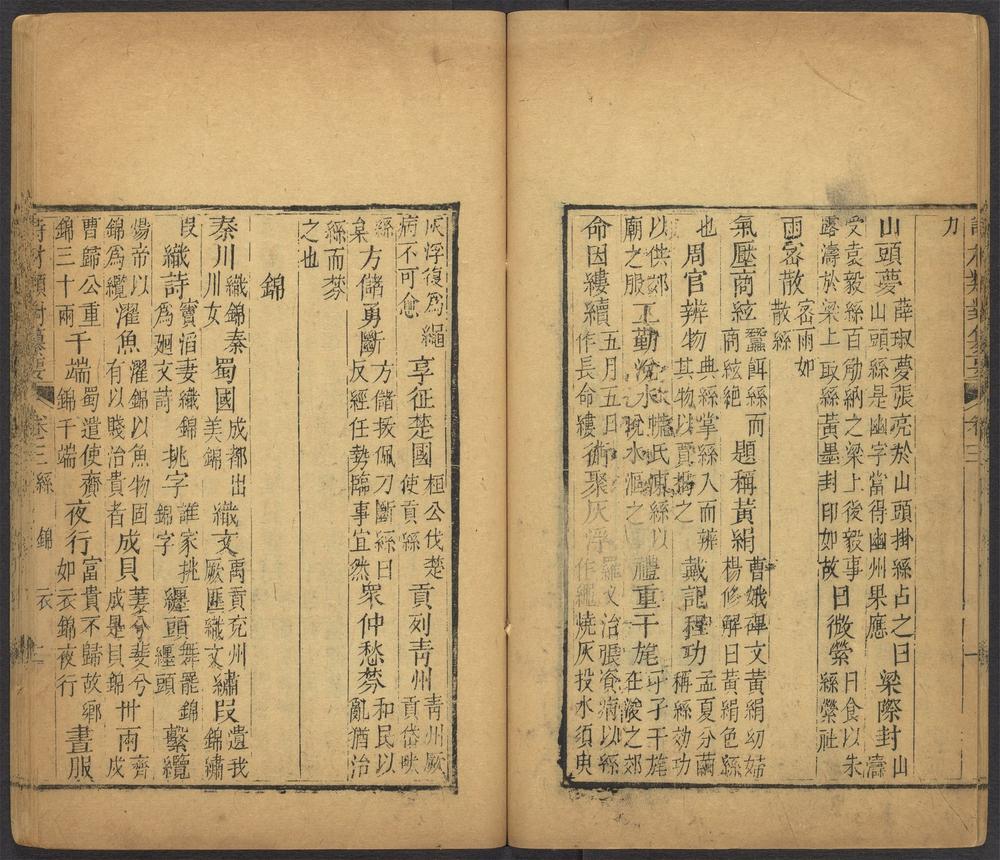 力
山頭夢 薛琡夢張亮於山頭掛絲占之曰山頭絲是幽字當得幽州果應 梁際封 山濤
受袁毅絲百觔納之梁上後毅事露濤於梁上取絲黃墨封印如故 日微縈 日食以朱絲縈社
雨密散 密雨如散絲
氣壓商絃 蠶餌絲而商絃絕 題稱黃絹 曹娥碑文黃絹幼婦楊修解曰黃絹色絲
也 周官辨物 典絲掌絲入而辨其物以賈揭之 戴記程功 孟夏分繭稱絲效功
以供郊廟之服 工勤涗水 㡛氏湅絲以涗水漚之 禮重干旄 孑孑干旄在浚之郊
命因縷續 五月五日作長命縷 術聚灰浮 羅公治張資病以絲作繩燒灰投水須臾
灰浮復爲繩病不可愈 享征楚國 桓公伐楚使貢絲 貢列青州 青州厥貢岱畎
絲 方儲勇斷 方儲拔佩刀斷絲曰反經任勢臨事宜然 眾仲愁棼 和民以亂猶治
絲而棼之也
錦
秦川 織錦秦川女 蜀國 成都出美錦 織文 禹貢兗州厥匪織文 繡段 遺我錦繡
段 織詩 竇滔妻織錦爲廻文詩 挑字 誰家挑錦字 纏頭 舞罷錦纏頭 繫纜
煬帝以錦爲纜 濯魚 濯錦以魚物固有以賤治貴者 成貝 萋兮斐兮成是貝錦 卅兩 齊戍
曹歸公重錦三十兩 千端 蜀遣使齎錦千端 夜行 富貴不歸故鄉如衣錦夜行 晝服
詩材類對纂要 卷三 絲 錦 衣 二